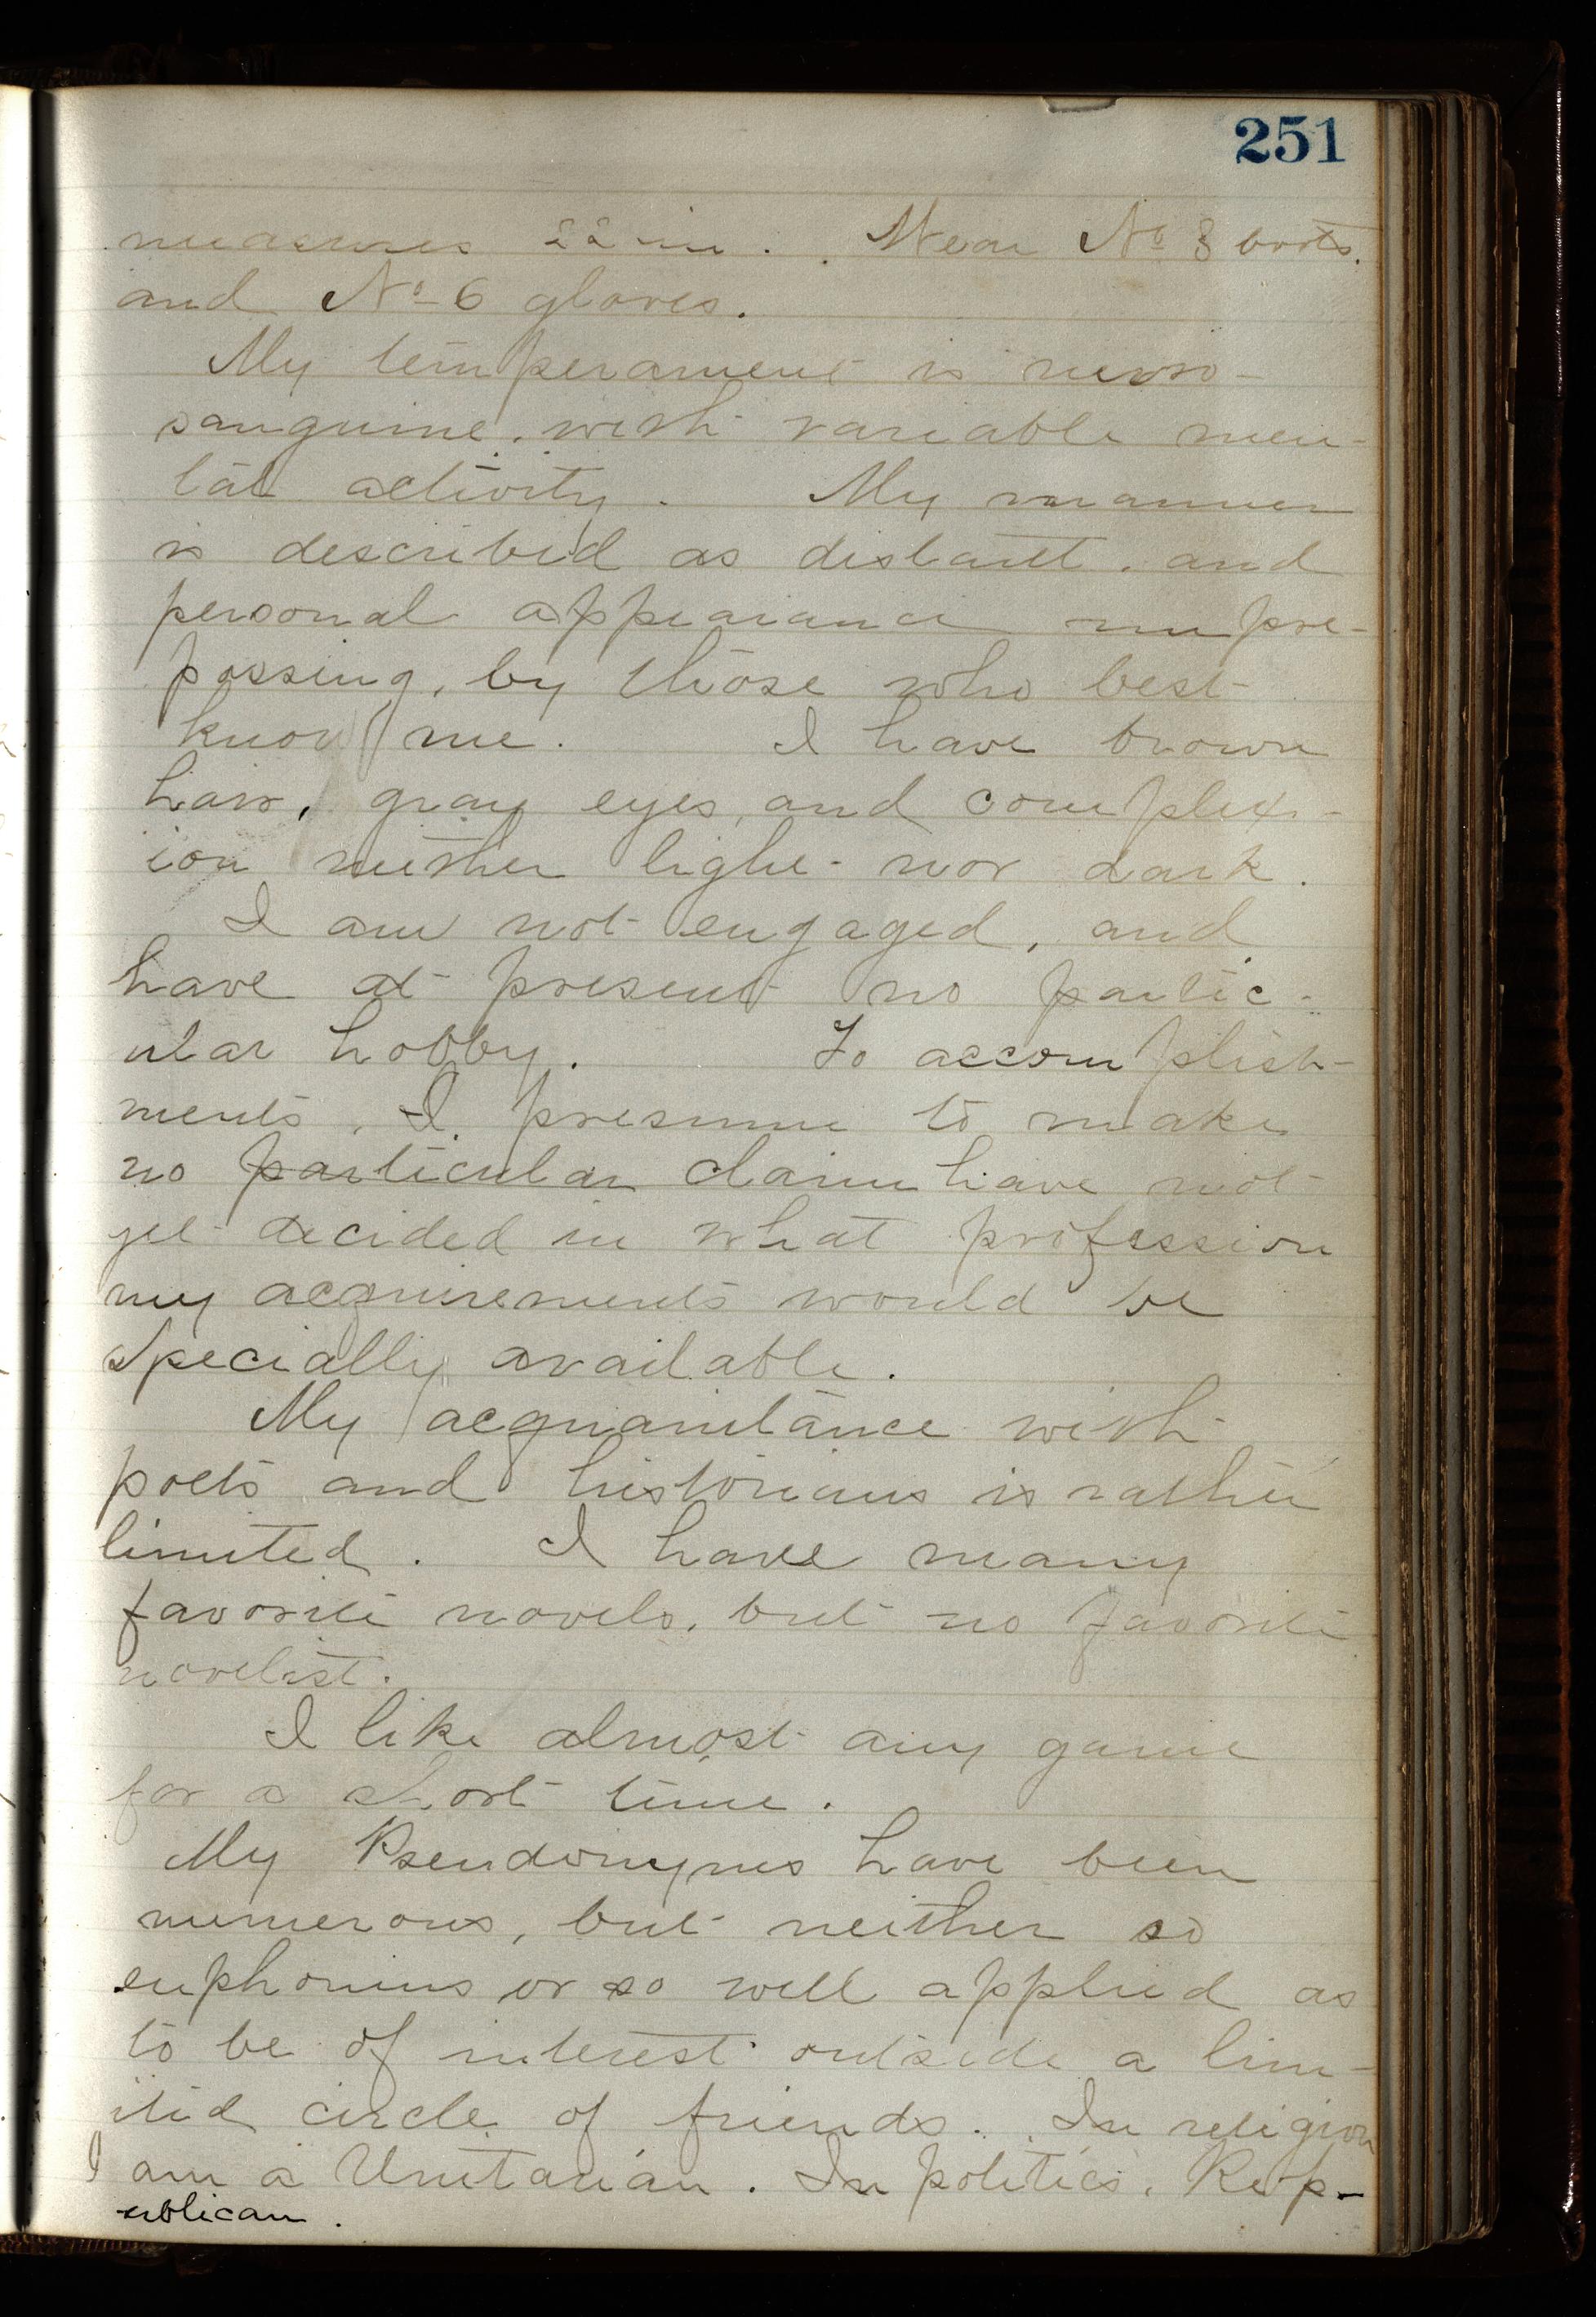 251
measures 22 in. Wear No 3 boots.
and No 6 gloves.
My temperament is nervo-
sanguine, with variable men-
tal activity. My manner
is described as distant, and
personal appearance unpre-
possing, by those who best
know me. I have brown
hair, gray eyes, and complex-
ion neither light nor dark.
I am not engaged, and
have at present no partic-
ular hobby. To accomplish-
ments, I presume to make
no particular claim have not
yet decided in what profession
my acquirements would be
specially available.
My acquaintance with
poets and historians is rather
limited. I have many
favorite novels, but no favorite
novelist.
I like almost any game
for a short time.
My Pseudonymes have been
numerous, but neither so
euphonius or so well applied as
to be of interest outside a lim-
ited circle of friends. In religion
I am a Unitarian. In politics, Rep-
ublican.